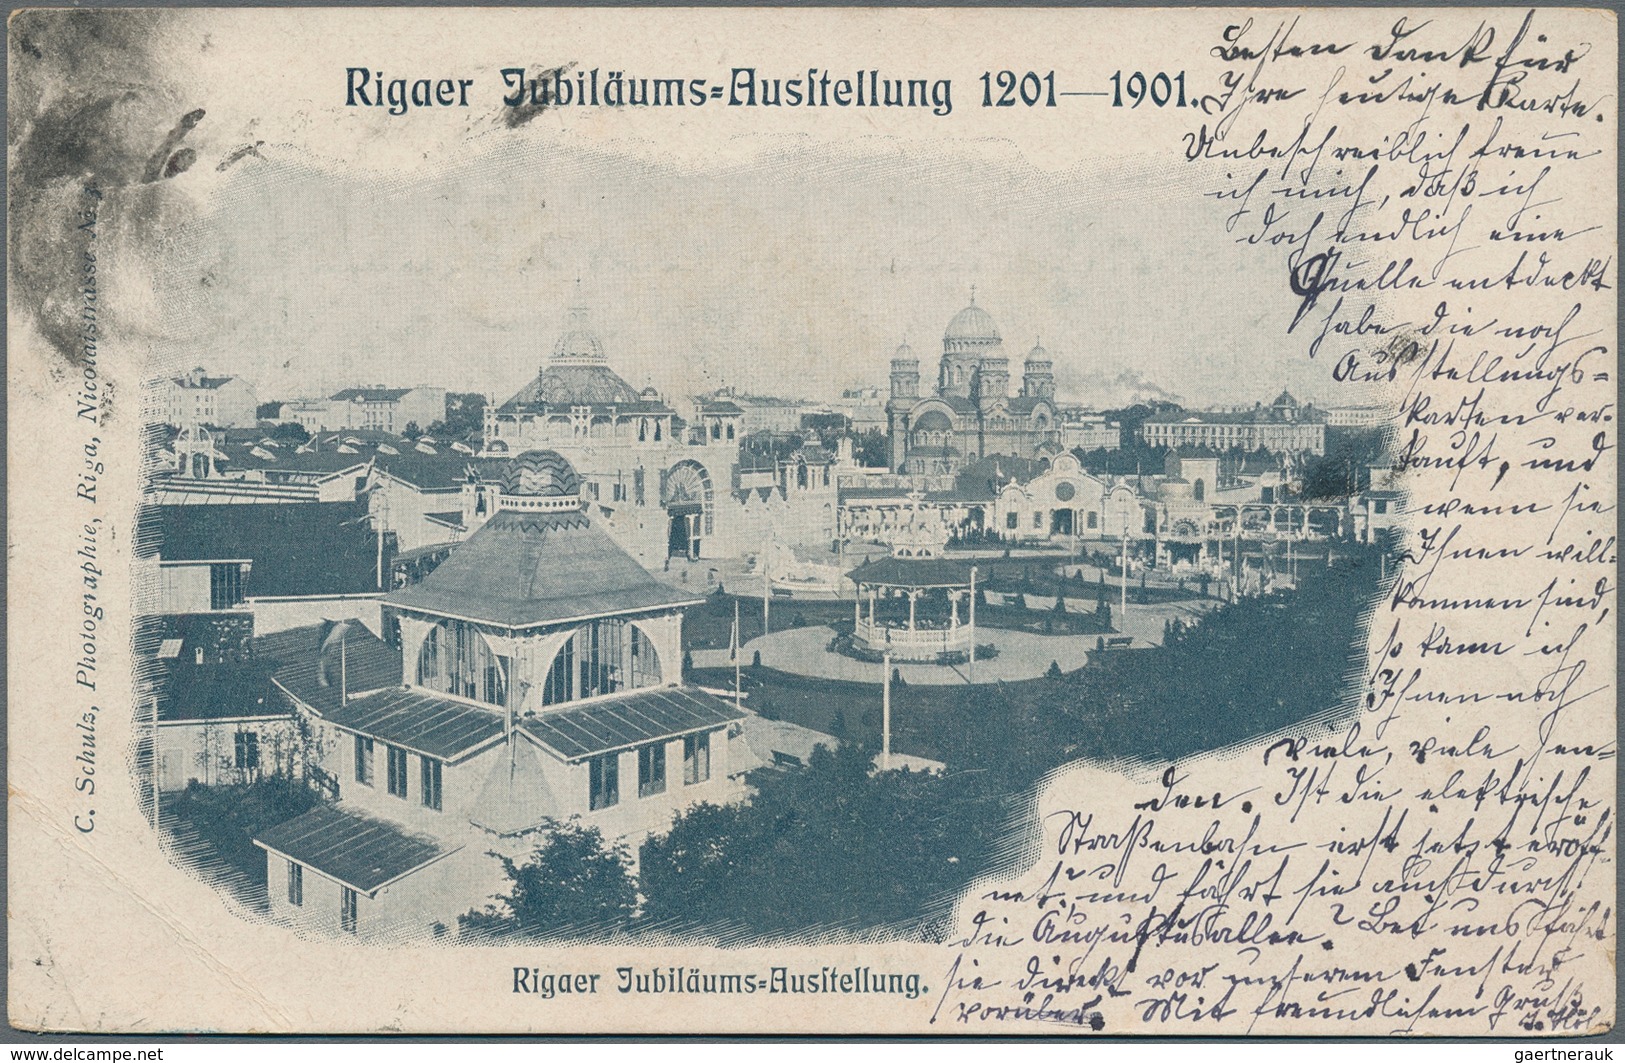 Rigaer Jubiläums-Ausstellung 1201—1901.
Besten Dank für
Ihre heutige Karte.
Unbeschreiblich freue
ich mich, daß ich
doch endlich eine
Quelle entdeckt
habe die noch
Ausstellungs=
karten ver-
kauft, und
wenn sie
Ihnen will=
kommen sind,
so kann ich
Ihnen noch
viele, viele sen=
den. Ist die elektrische
Straßenbahn erst jetzt eröff-
net? und fährt sie auch durch
die Augustusallee? Bei uns fährt
sie direkt vor unserem Fenster
vorüber. Mit freundlichem Gruß
C. Schulz, Photographie, Riga, Nicolaistrasse №
Rigaer Jubiläums-Ausstellung.
delcampe.net
gaertnerauk